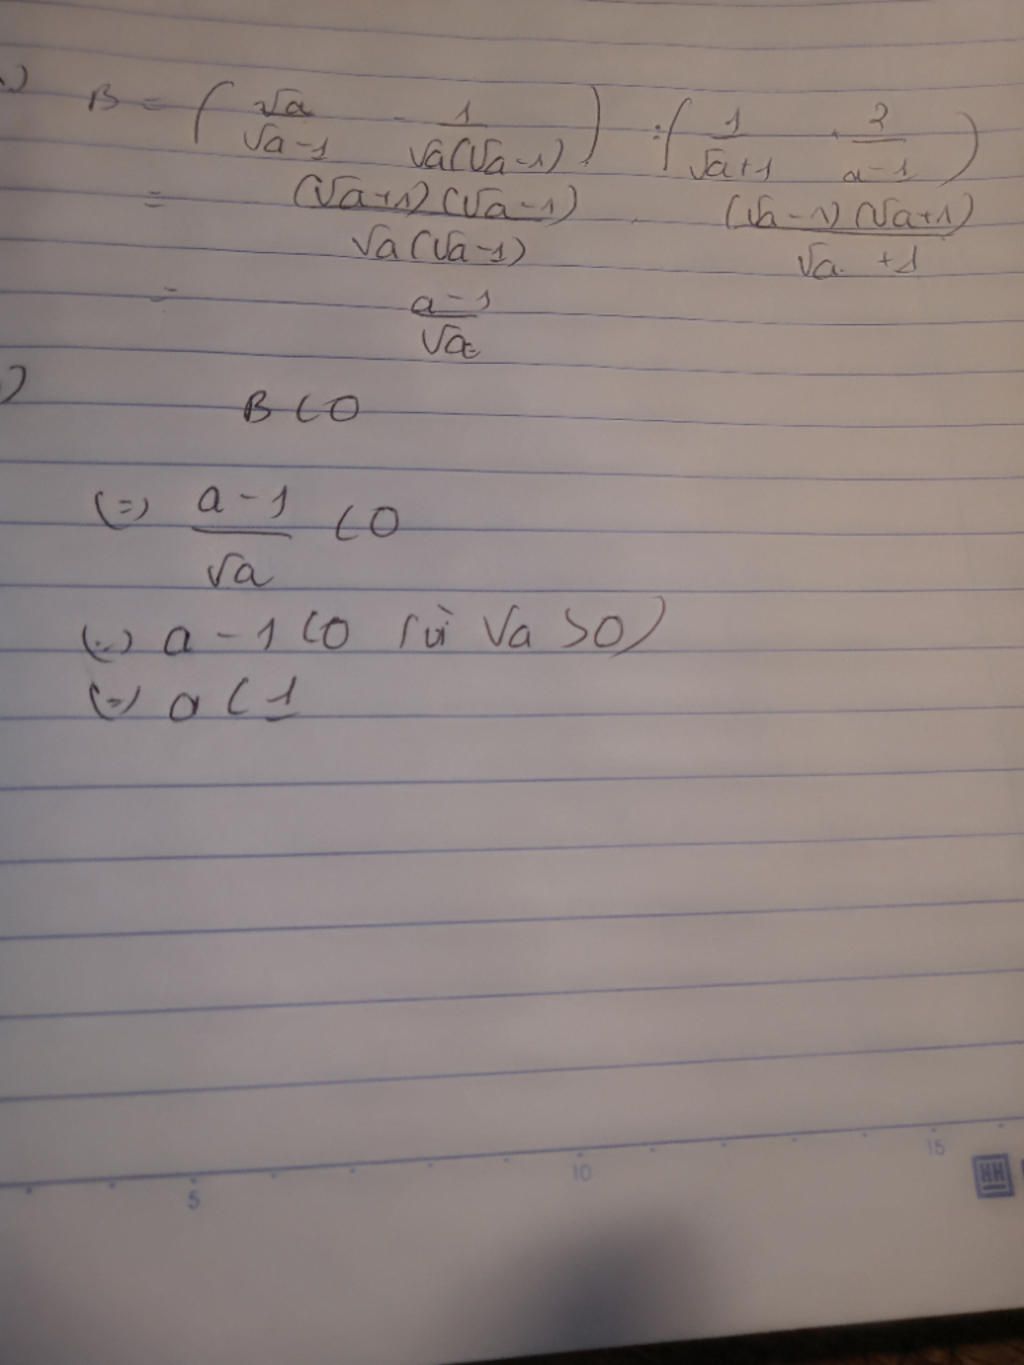 B = ( √a / √a-1 - 1 / √a(√a-1) ) : ( 1 / √a+1 · 2 / a-1 )
= (√a+1)(√a-1) / √a(√a-1) . (√a-1)(√a+1) / √a +1
= a-1 / √a
B < 0
(=) a-1 / √a < 0
(=) a-1 < 0 (vì √a > 0)
(=) a < 1
5 10 15
HH